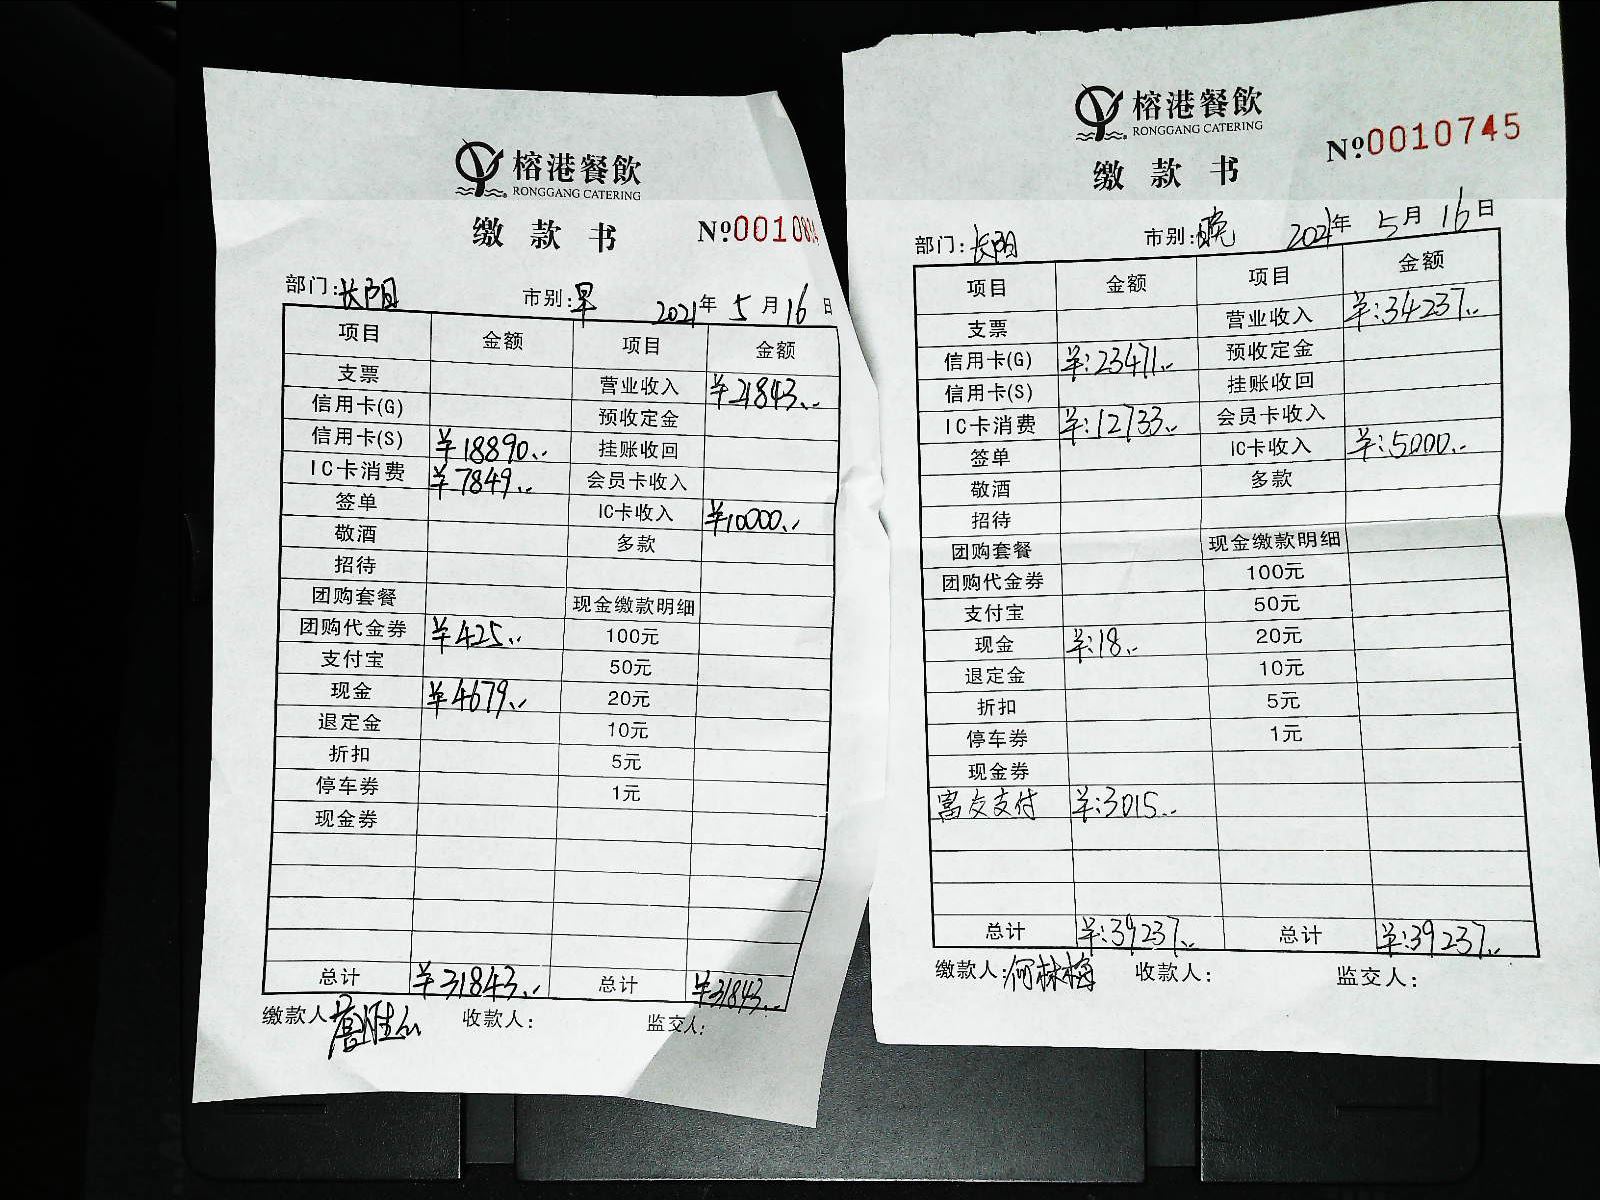 榕港餐飲
RONGGANG CATERING
缴款书
№0010
部门:长阳 市别:早 2021年5月16日
项目 金额 项目 金额
支票 营业收入 ¥21843..
信用卡(G) 预收定金
信用卡(S) ¥18890.. 挂账收回
IC卡消费 ¥7849.. 会员卡收入
签单 IC卡收入 ¥10000..
敬酒 多款
招待
团购套餐 现金缴款明细
团购代金券 ¥425.. 100元
支付宝 50元
现金 ¥4679.. 20元
退定金 10元
折扣 5元
停车券 1元
现金券
总计 ¥31843.. 总计 ¥31843..
缴款人 收款人: 监交人:
榕港餐飲
RONGGANG CATERING
缴款书
№0010745
部门:长阳 市别:晚 2021年5月16日
项目 金额 项目 金额
支票 营业收入 ¥:34237..
信用卡(G) ¥:23471.. 预收定金
信用卡(S) 挂账收回
IC卡消费 ¥:12733.. 会员卡收入
签单 IC卡收入 ¥:5000..
敬酒 多款
招待
团购套餐 现金缴款明细
团购代金券 100元
支付宝 50元
现金 ¥:18.. 20元
退定金 10元
折扣 5元
停车券 1元
现金券
富友支付 ¥:3015..
总计 ¥:39237.. 总计 ¥:39237..
缴款人:何林梅 收款人: 监交人: